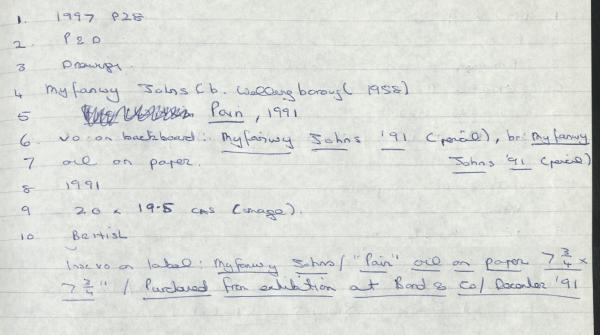 1. 1997 P28
2. P & D
3 Drawings.
4 Myfanwy Johns (b. Wellingborough 1958)
5 Pain, 1991
6. vo on backboard: Myfanwy Johns '91 (pencil), br: Myfanwy
7 oil on paper. Johns '91 (pencil)
8 1991
9 20 x 19.5 cms (image).
10 British
Inscr. vo on label: Myfanwy Johns / "Pain" oil on paper 7 3/4 x
7 3/4" / Purchased from exhibition at Bond & Co / December '91